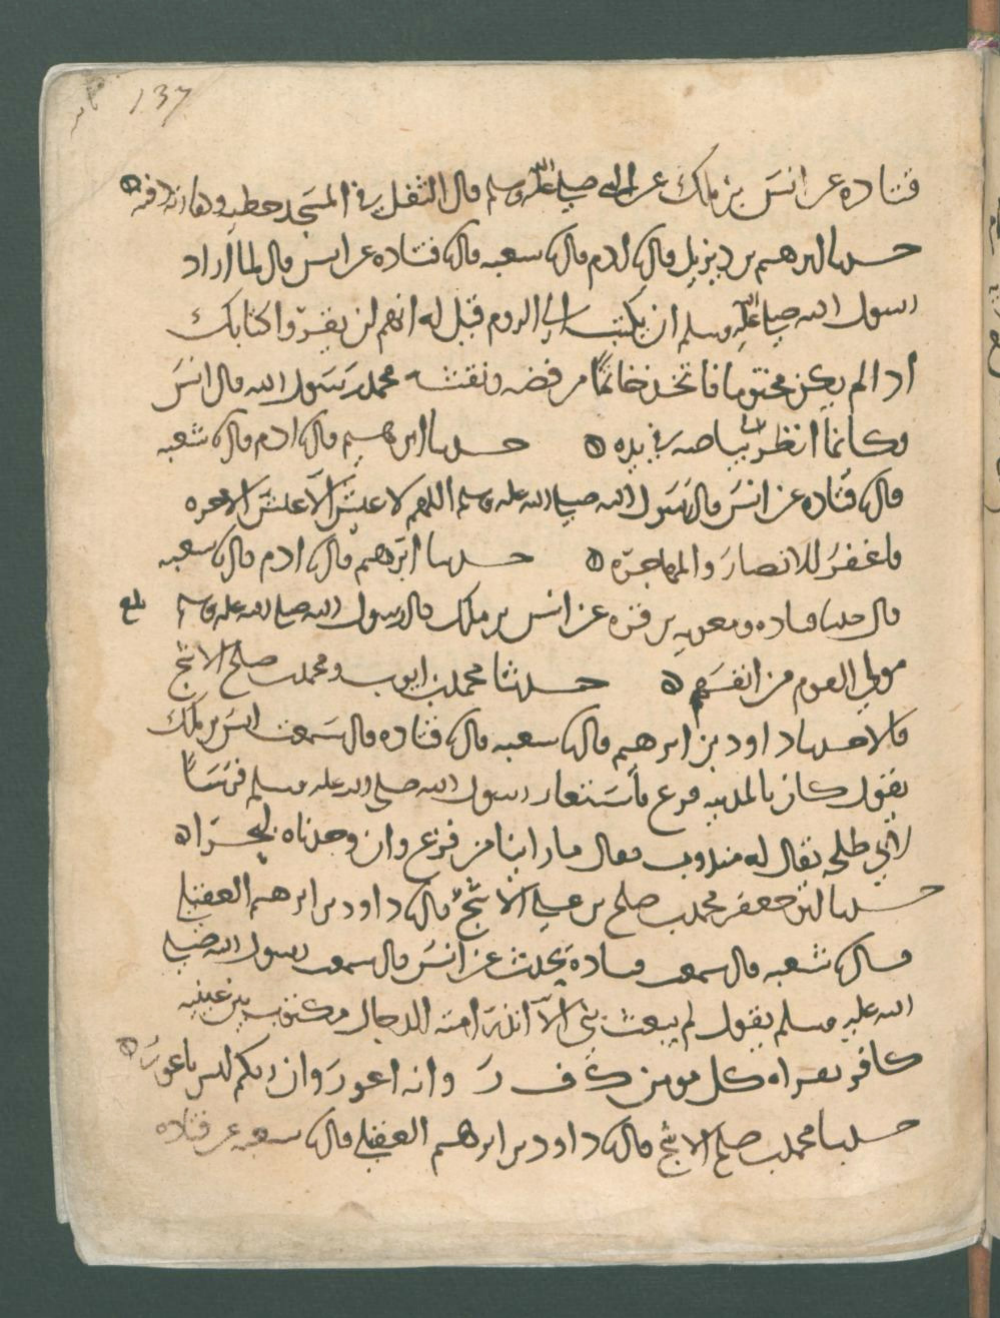 137
قتاده عن انس بن ملك عن النبي صلى الله عليه وسلم قال التفل في المسجد خطيه وكفارته دفنه
حدثنا ابرهيم بن ديزيل قال ادم قال شعبه قال قتاده عن انس قال لما اراد
رسول الله صلى الله عليه وسلم ان يكتب الى الروم قيل له انهم لن يقروا كتابك
اذا لم يكن مختوما فاتخذ خاتما من فضه ونقشه محمد رسول الله قال انس
فكانما انظر الى بياضه في يده ه حدثنا ابرهيم قال ادم قال شعبه
قال قتاده عن انس قال رسول الله صلى الله عليه وسلم اللهم لا عيش الا عيش الاخره
فاغفر للانصار والمهاجره ه حدثنا ابرهيم قال ادم قال شعبه
قال حدثنا قتاده ومعويه بن قره عن انس بن ملك قال رسول الله صلى الله عليه وسلم بلغ
مولى القوم من انفسهم ه حدثنا محمد بن ايوب ومحمد بن صلح الاشج
قالا حدثنا داود بن ابرهيم قال شعبه قال قتاده قال سمعت انس بن ملك
يقول كان بالمدينه فزع فاستعار رسول الله صلى الله عليه وسلم فرسا
لابي طلحه يقال له مندوب فقال ما راينا من فزع وان وجدناه لبحرا ه
حدثنا ابو جعفر محمد بن صلح بن علي الاشج قال داود بن ابرهيم العقيلي
قال شعبه قال سمعت قتاده يحدث عن انس قال سمعت رسول الله صلى
الله عليه وسلم يقول لم يبعث نبي الا انذر امته الدجال مكتوب بين عينيه
كافر يقراه كل مومن ك ف ر وانه اعور وان ربكم ليس باعور ه
حدثنا محمد بن صلح الاشج قال داود بن ابرهيم العقيلي قال شعبه عن قتاده